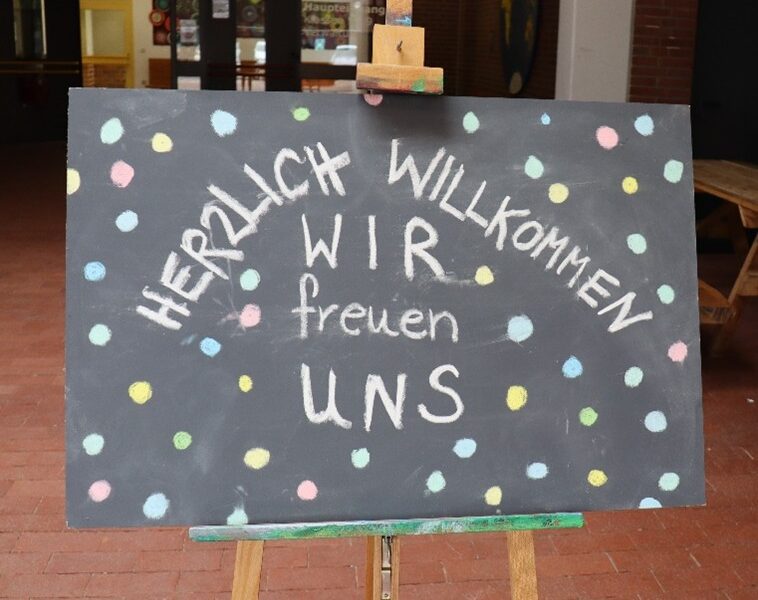 Haupteingang
HERZLICH WILLKOMMEN
WIR
freuen
UNS